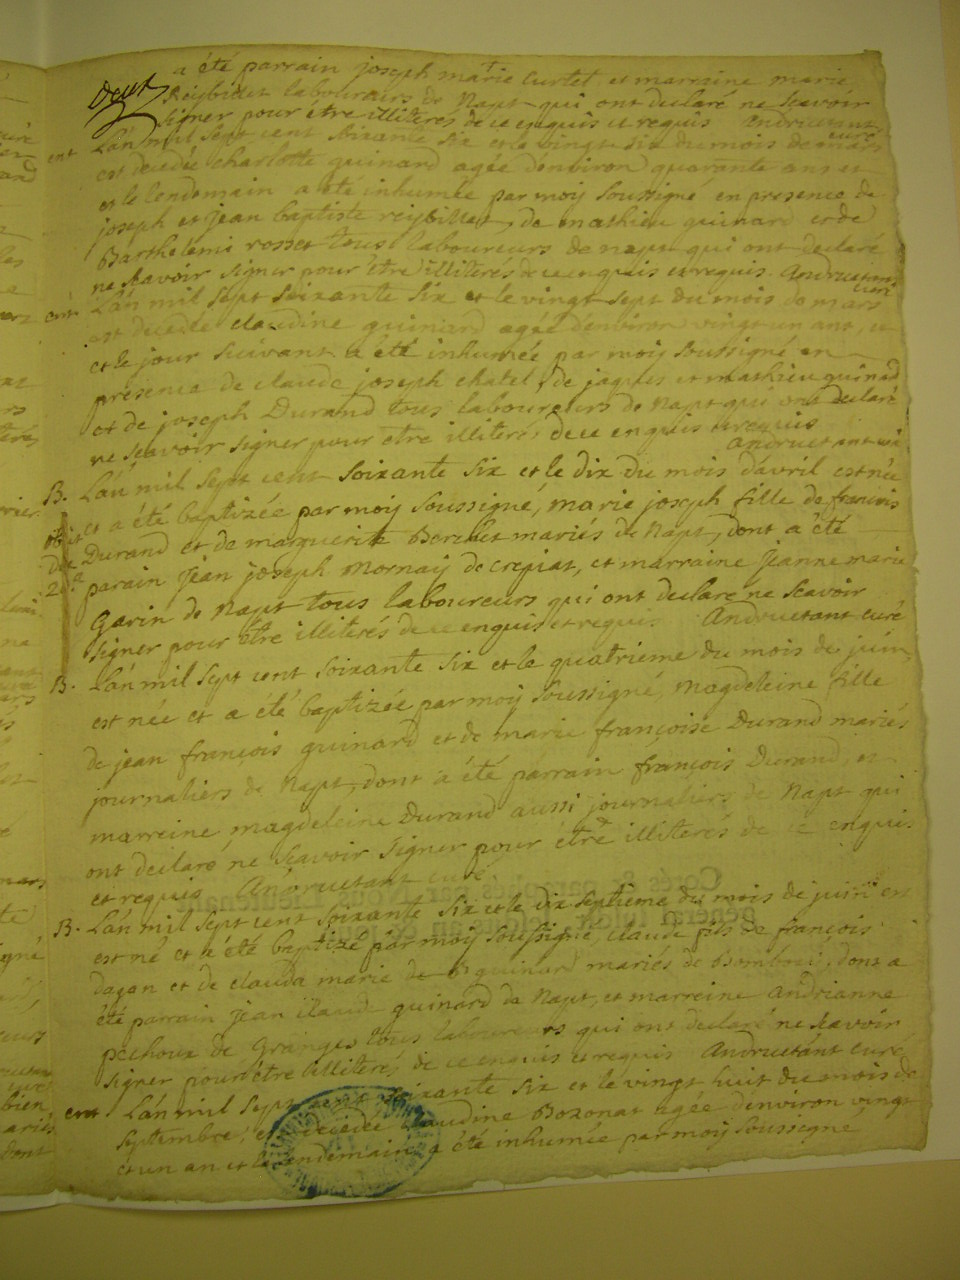 a été parrain joseph marie Curtet et marraine marie
Reybillet laboureurs de Napt qui ont declaré ne scavoir
signer pour être illiterés de ce enquis et requis Andruetant curé
ent L'án mil sept cent soixante six et le vingt six du mois de mars
est decedée charlotte guinard agée d'environ quarante ans et
et le lendemain a été inhumée par moij soussigné en presence de
joseph et jean baptiste reijbillet, de mathieu guinard et de
Barthelemi rosset tous laboureurs de napt qui ont declaré
ne scavoir signer pour être illiterés de ce enquis et requis. Andruetant curé
ent. L'án mil sept soixante six et le vingt sept du mois de mars
est decedée claudine guinard agée d'environ vingt un ant, et
et le jour suivant a été inhumée par moij soussigné en
presence de claude joseph chatel, de jaques et mathieu guinard
et de joseph Durand tous laboureurs de Napt qui ont declaré
ne scavoir signer pour etre illiterés de ce enquis et requis
Andruetant curé
B. L'án mil sept cent soixante six et le dix du mois d'avril est née
et a été baptizée par moij soussigné, marie joseph fille de francois
obiit
Durand et de marguerite Berchet mariés de Napt, dont a été
parain jean joseph Mornaij de crepiat, et marraine jeanne marie
Garin de Napt tous laboureurs qui ont declaré ne scavoir
signer pour être illiterés de ce enquis et requis Andruetant curé
B. L'án mil sept cent soixante six et le quatrieme du mois de juin,
est née et a été baptizée par moij soussigné, magdeleine fille
de jean françois guinard et de marie françoise Durand mariés
journaliers de Napt, dont a été parrain françois Durand, et
marreine magdeleine Durand aussi journaliers de Napt qui
ont declaré ne scavoir signer pour être illiterés de ce enquis
et requis Andruetant curé.
B. L'án mil sept cent soixante six et le dix septieme du mois de juin est
est né et a été baptizé par moij soussigné, claude fils de françois
dagan et de clauda marie guinard mariés de, dont a
été parrain jean claud guinard de Napt, et marreine Andrianne
pechoux de Granges tous laboureurs qui ont declaré ne scavoir
signer pour être illiterés de ce enquis et requis Andruetant curé
ent L'án mil sept cent soixante six et le vingt huit du mois de
septembre, est decedée claudine Bozonat agée d'environ vingt
et un an et le lendemain a été inhumée par moij soussigné